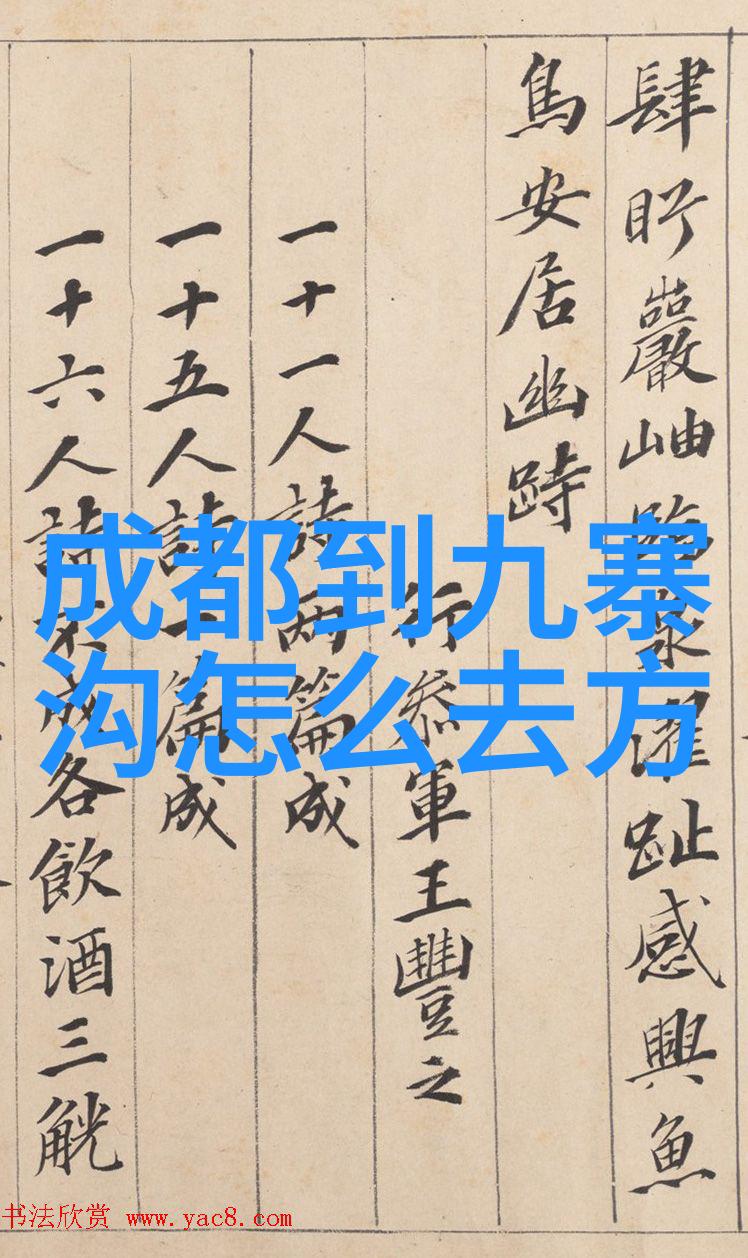 肆眄巖岫臨泉濯趾感興魚
鳥安居幽跱
行參軍王豐之
一十一人詩兩篇成
一十五人詩一篇成
一十六人詩不成各飲酒三觥
成都到九寨
沟怎么去方
书法欣赏 www.yac8.com